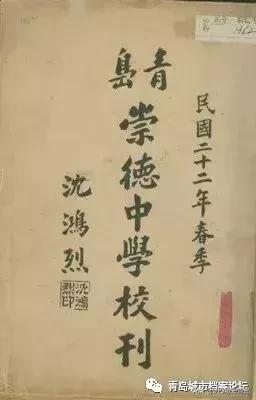 民國二十二年春季
青島
崇德中學校刊
沈鴻烈
沈鴻烈印
青岛城市档案论坛